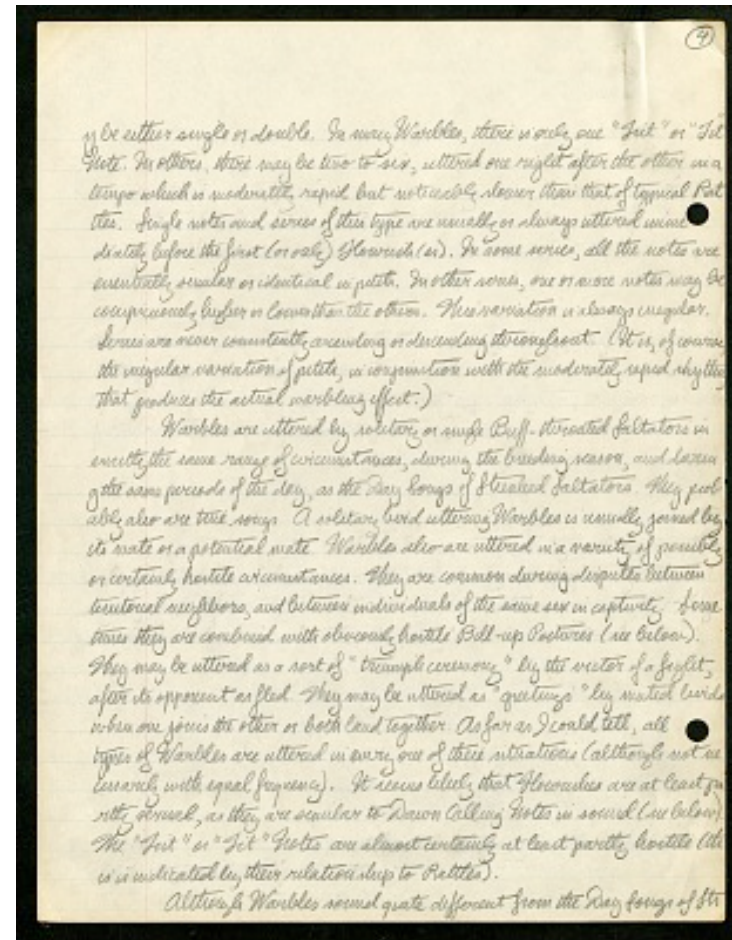 4
y be either single or double. In many Warbles, there is only one "Tsit" or "Tit"
Note. In others, there may be two to six, uttered one right after the other in a
tempo which is moderately rapid but noticeably slower than that of typical Rat
tles. Single notes and series of this type are usually or always uttered imme
diately before the first (or only) Flourish(es). In some series, all the notes are
essentially similar or identical in pitch. In other series, one or more notes may be
conspicuously higher or lower than the others. This variation is always irregular.
Series are never consistently ascending or descending throughout. (It is, of course,
the irregular variation of pitch, in conjunction with the moderately rapid rhythm
that produces the actual warbling effect.)
Warbles are uttered by solitary or single Buff-throated Saltators in
exactly the same range of circumstances, during the breeding season, and durin
g the same periods of the day, as the Day Songs of Streaked Saltators. They prob
ably also are true songs. A solitary bird uttering Warbles is usually joined by
its mate or a potential mate. Warbles also are uttered in a variety of possibly
or certainly hostile circumstances. They are common during disputes between
territorial neighbors, and between individuals of the same sex in captivity. Some
times they are combined with obviously hostile Bill-up Postures (see below).
They may be uttered as a sort of "triumph ceremony" by the victor of a fight,
after its opponent as fled. They may be uttered as "greetings" by mated birds
when one joins the other or both land together. As far as I could tell, all
types of Warbles are uttered in every one of these situations (although not ne
cessarily with equal frequency). It seems likely that Flourishes are at least pa
rtly sexual, as they are similar to Dawn Calling Notes in sound (see below).
The "Tsit" or "Tit" Notes are almost certainly at least partly hostile (th
is is indicated by their relationship to Rattles).
Although Warbles sound quite different from the Day Songs of Str